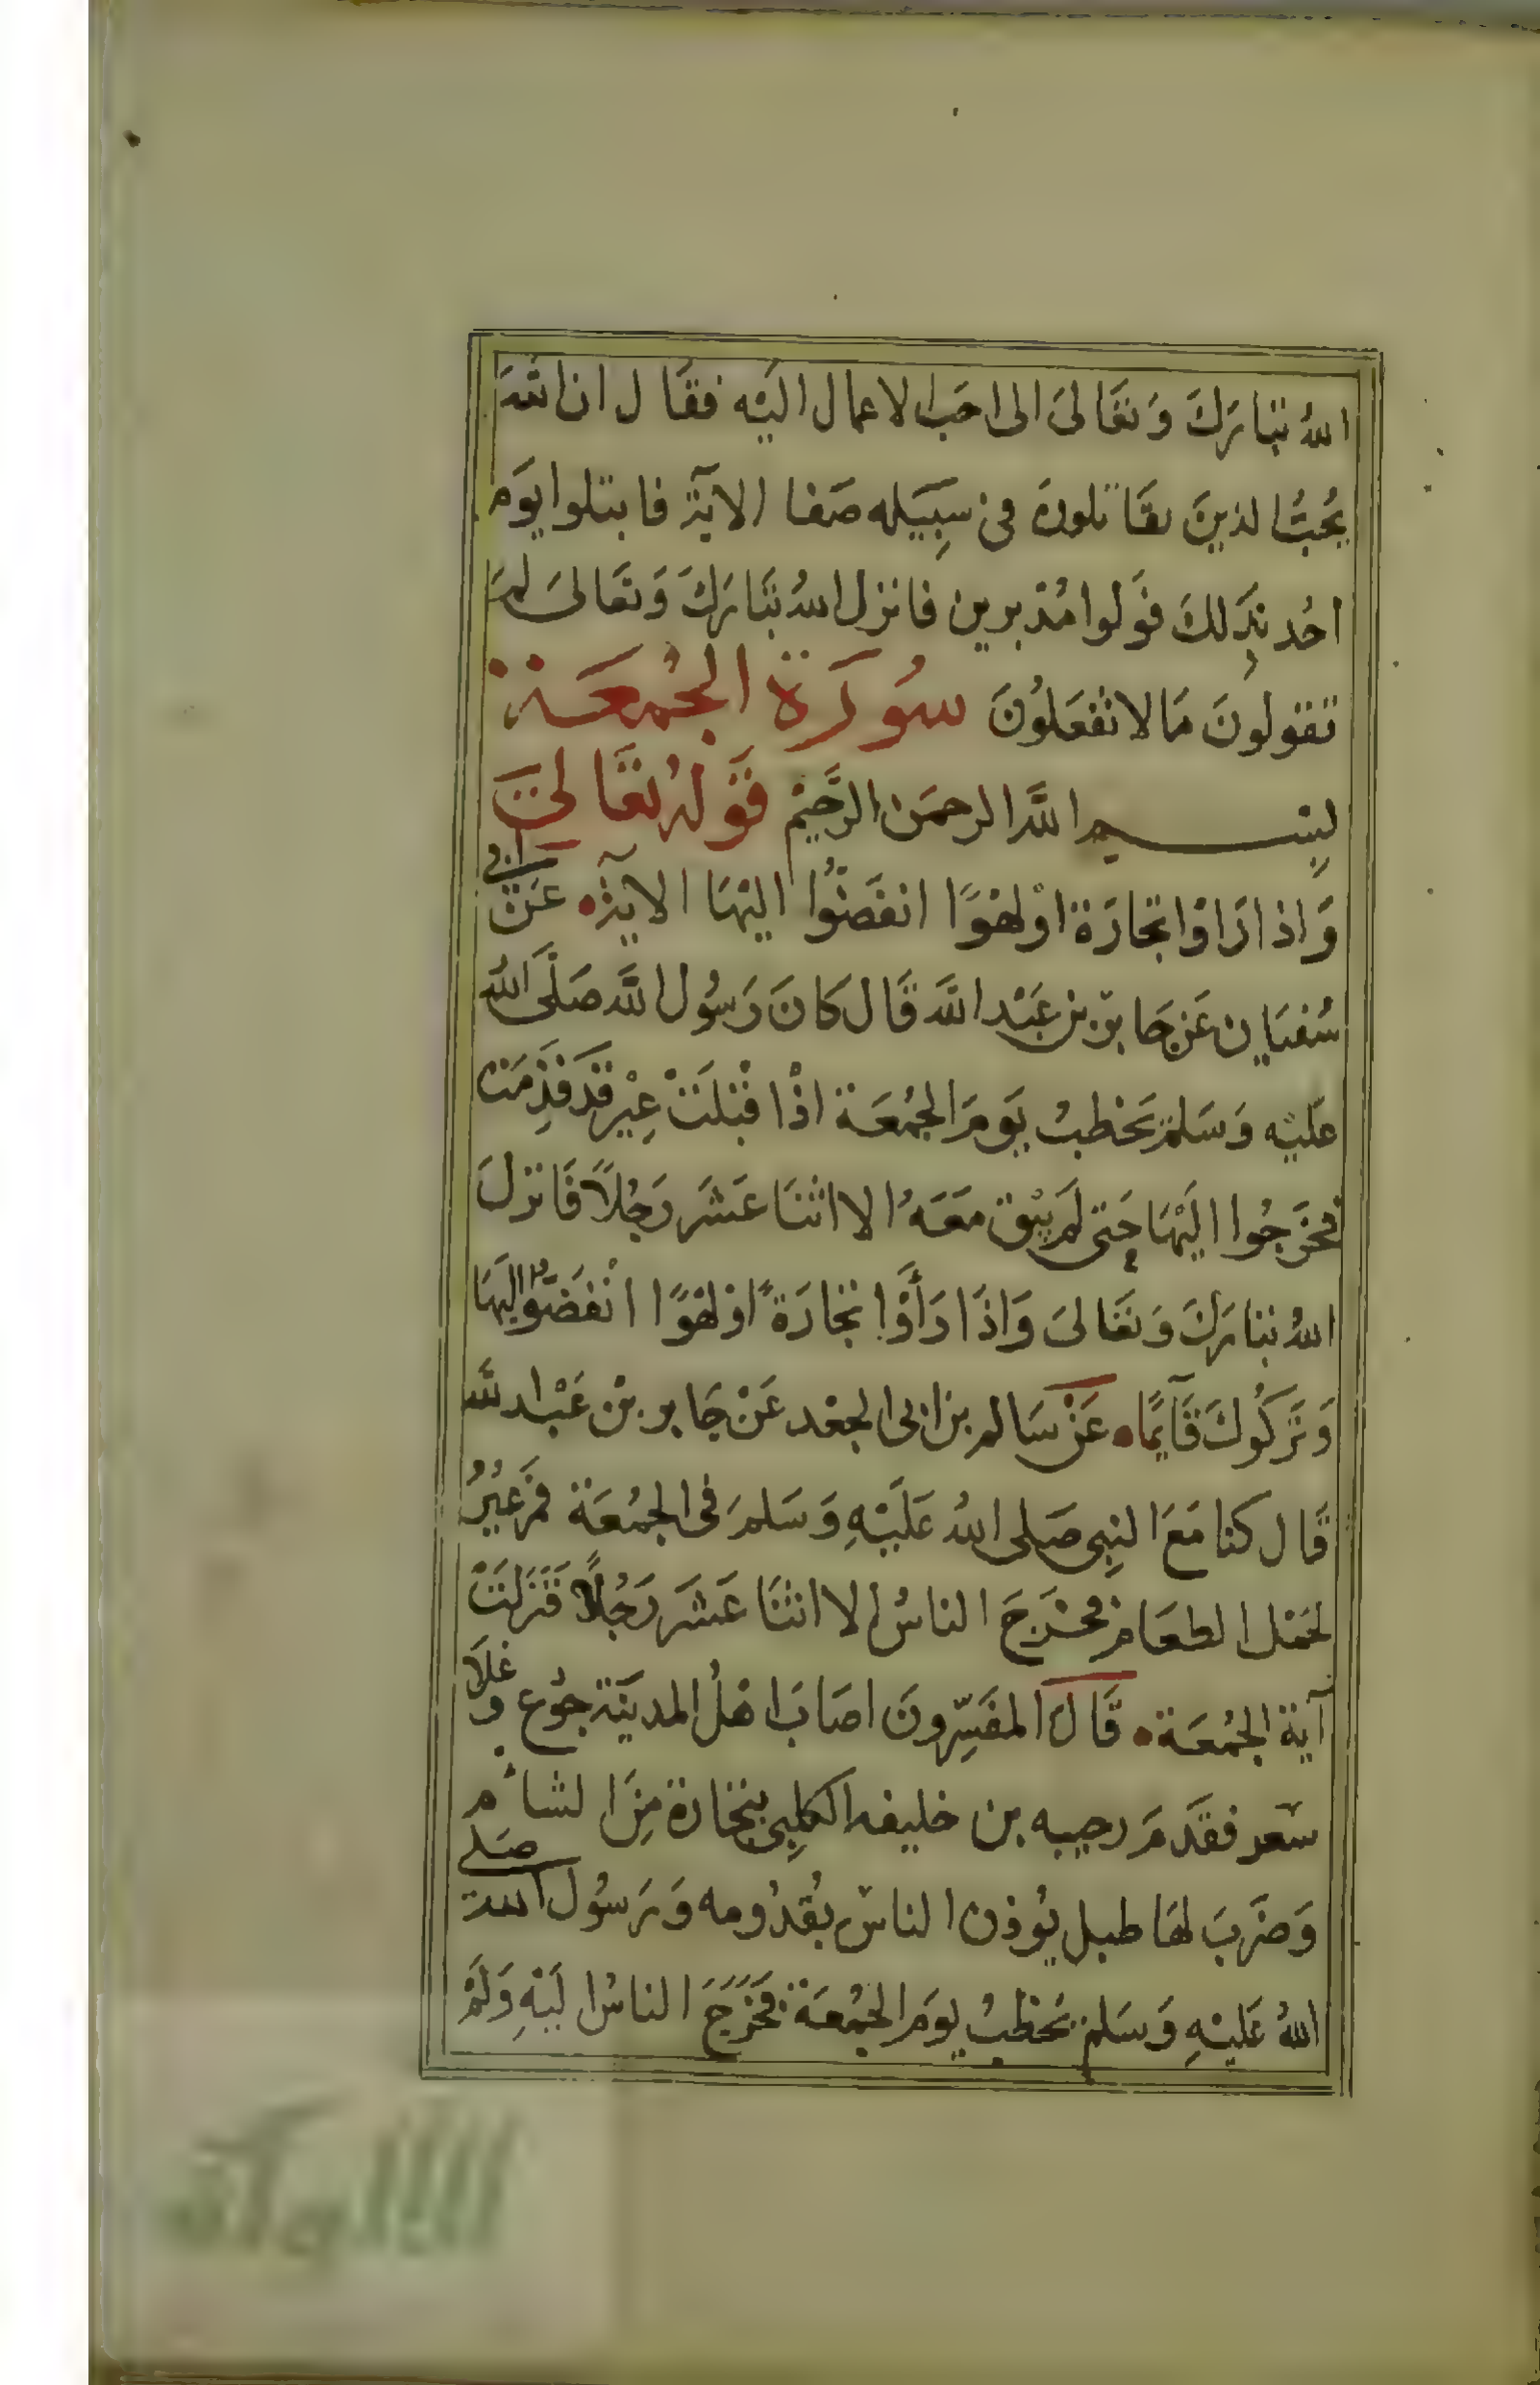 الله تبارك وتعالى الى احب الاعمال اليه فقال ان الله
يحب الذين يقاتلون في سبيله صفا الاية فابتلوا يوم
احد بذلك فولوا مدبرين فانزل الله تبارك وتعالى لم
تقولون ما لا تفعلون سورة الجمعة
بسم الله الرحمن الرحيم قوله تعالى
واذا راوا تجارة او لهوا انفضوا اليها الاية عن ابي
سفيان عن جابر بن عبد الله قال كان رسول الله صلى الله
عليه وسلم يخطب يوم الجمعة اذ اقبلت عير قد قدمت
فخرجوا اليها حتى لم يبق معه الا اثنا عشر رجلا فانزل
الله تبارك وتعالى واذا رأوا تجارة او لهوا انفضوا اليها
وتركوك قآيما عن سالم بن ابي الجعد عن جابر بن عبد الله
قال كنا مع النبي صلى الله عليه وسلم في الجمعة فمر عير
لحمل الطعام فخرج الناس الا اثنا عشر رجلا فنزلت
آية الجمعة قال المفسرون اصاب اهل المدينة جوع وغلا
سعر فقدم رحيبه بن خليفه الكلبي بتجارة من الشام
وضرب لها طبل يوذن الناس بقدومه ورسول الله صلى
الله عليه وسلم يخطب يوم الجمعة فخرج الناس اليه ولم
الألوكة